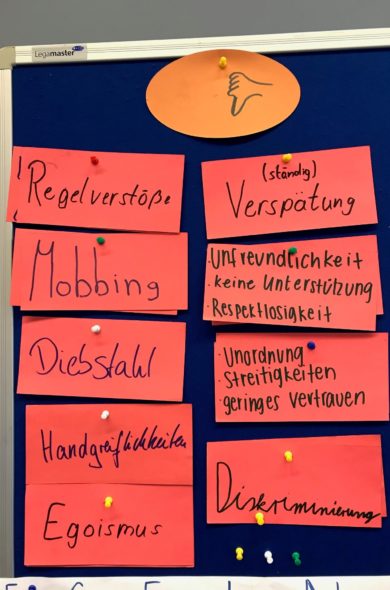 Legamaster
Regelverstöße
Mobbing
Diebstahl
Handgreiflichkeiten
Egoismus
(ständig)
Verspätung
· Unfreundlichkeit
· keine Unterstützung
· Respektlosigkeit
· Unordnung
· Streitigkeiten
· geringes Vertrauen
Diskriminierung